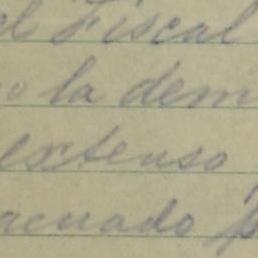 el Fiscal
o la dem
extenso
acuado p